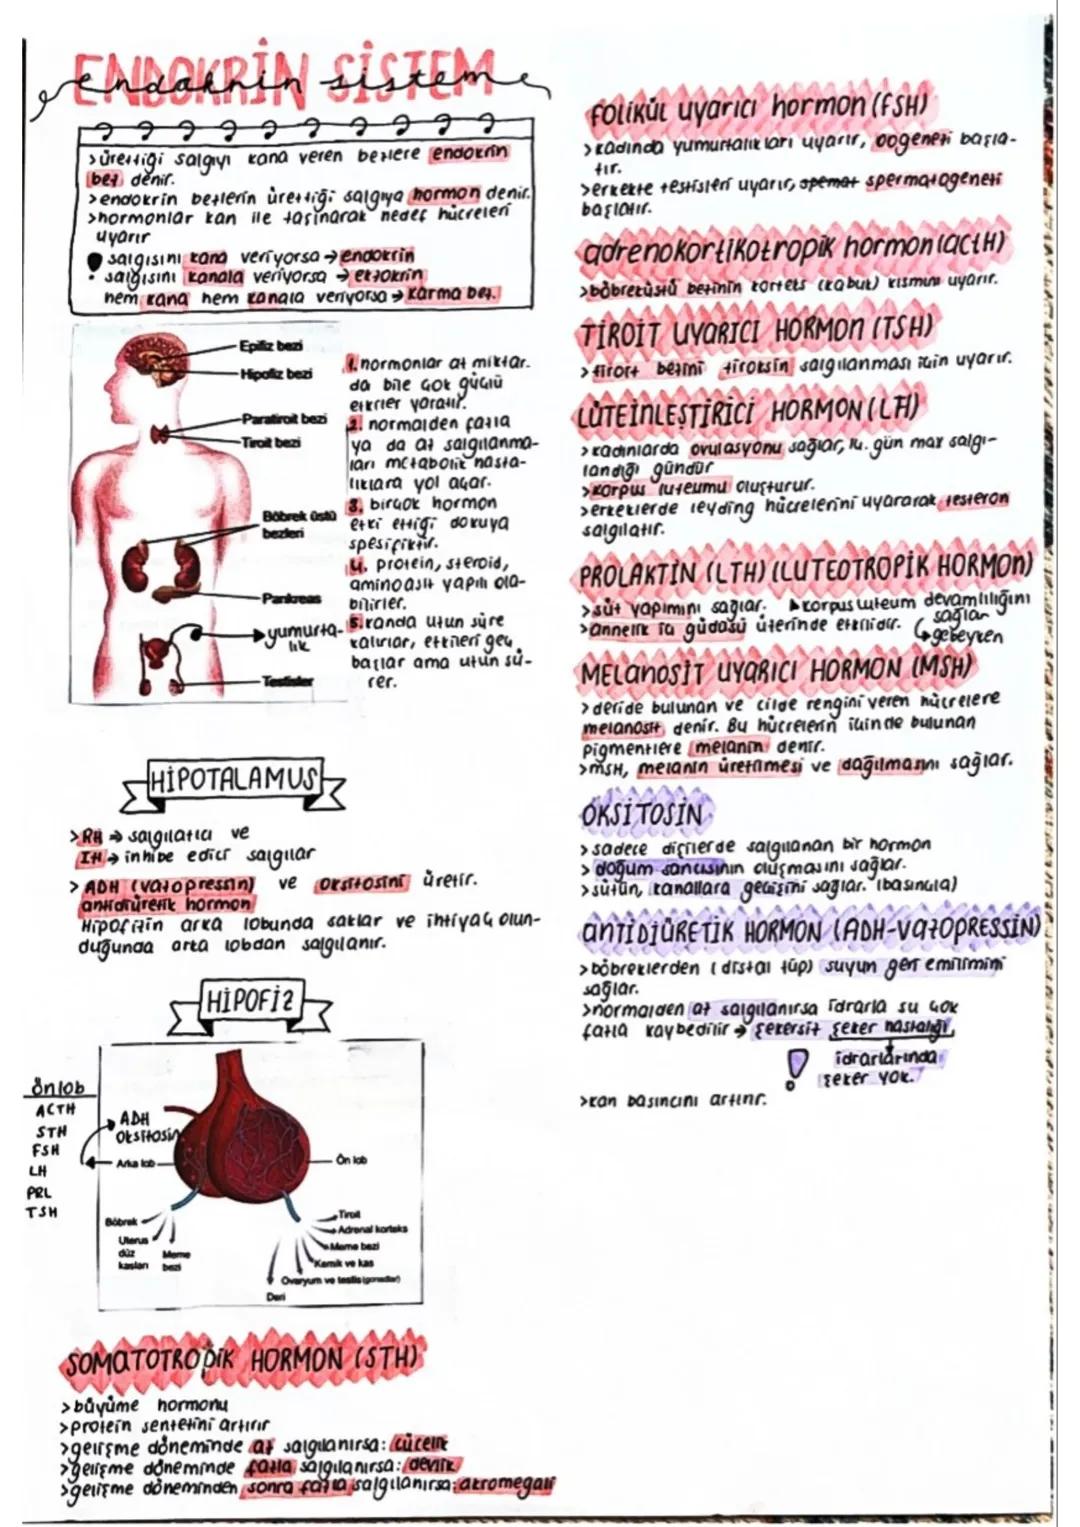 ENDOKRİN SİSTEM
endokrin sistem
>ürettiği salgıyı kana veren bezlere endokrin
bez denir.
>endokrin bezlerin ürettiği salgıya hormon denir.
>hormonlar kan ile taşınarak hedef hücreleri
uyarır
salgısını kana veriyorsa → endokrin
• salgısını kanala veriyorsa → ekzokrin
hem kana hem kanala veriyorsa → karma bez.
Epifiz bezi
Hipofiz bezi
Paratiroit bezi
Tiroit bezi
Böbrek üstü
bezleri
Pankreas
yumurta-
lık
Testisler
1. hormonlar az miktar.
da bile çok güçlü
etkiler yaratır.
2. normalden fazla
ya da az salgılanma-
ları metabolik hasta-
lıklara yol açar.
3. birçok hormon
etki ettiği dokuya
spesifiktir.
4. protein, steroid,
aminoasit yapılı ola-
bilirler.
5. kanda uzun süre
kalırlar, etkileri geç
başlar ama uzun sü-
rer.
HİPOTALAMUS
>RH → salgılatıcı ve
IH → inhibe edici salgılar
>ADH (vazopressin) ve oksitosini üretir.
antidiüretik hormon
Hipofizin arka lobunda saklar ve ihtiyaç olun-
duğunda arka lobdan salgılanır.
HİPOFİZ
önlob
ACTH
STH
FSH
LH
PRL
TSH
ADH
oksitosin
Arka lob
Ön lob
Böbrek
Uterus
düz
kasları
Meme
bezi
Tiroit
Adrenal korteks
Meme bezi
Kemik ve kas
Ovaryum ve testis (gonadlar)
Deri
SOMATOTROPİK HORMON (STH)
>büyüme hormonu
>protein sentezini artırır
>gelişme döneminde az salgılanırsa: cücelik
>gelişme döneminde fazla salgılanırsa: devlik
>gelişme döneminden sonra fazla salgılanırsa: akromegali
folikül uyarıcı hormon (FSH)
>kadında yumurtalıkları uyarır, oogenezi başla-
tır.
>erkekte testisleri uyarır, spermatogenezi
başlatır.
adrenokortikotropik hormon (actH)
>böbreküstü bezinin korteks (kabuk) kısmını uyarır.
TİROİT UYARICI HORMON (TSH)
>tiroit bezini tiroksin salgılanması için uyarır.
LÜTEİNLEŞTİRİCİ HORMON (LH)
>kadınlarda ovulasyonu sağlar, 14. gün max salgı-
landığı gündür
>korpus luteumu oluşturur.
>erkeklerde leyding hücrelerini uyararak testeron
salgılatır.
PROLAKTİN (LTH) (LUTEOTROPİK HORMON)
>süt yapımını sağlar. korpus luteum devamlılığını
sağlar
>annelik iç güdüsü üzerinde etkilidir.
gebeyken
MELANOSİT UYARICI HORMON (MSH)
>deride bulunan ve cilde rengini veren hücrelere
melanosit denir. Bu hücrelerin içinde bulunan
pigmentlere melanin denir.
>MSH, melanin üretilmesi ve dağılmasını sağlar.
OKSİTOSİN
>sadece dişilerde salgılanan bir hormon
>doğum sancısının oluşmasını sağlar.
>sütün, kanallara geçişini sağlar. (basınçla)
ANTİDİÜRETİK HORMON (ADH-VAZOPRESSİN)
>böbreklerden (distal tüp) suyun geri emilimini
sağlar.
>normalden az salgılanırsa idrarla su çok
fazla kaybedilir → şekersiz şeker hastalığı,
! idrarlarında
şeker yok.
>kan basıncını artırır.